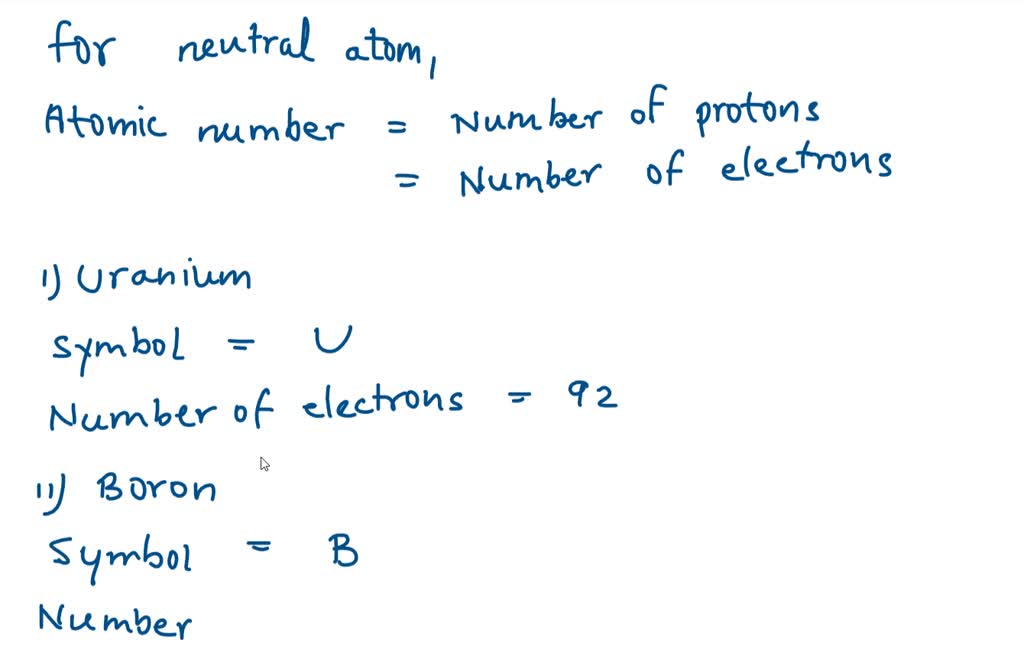 for neutral atom,
Atomic number = Number of protons
= Number of electrons
i) Uranium
Symbol = U
Number of electrons = 92
ii) Boron
Symbol = B
Number